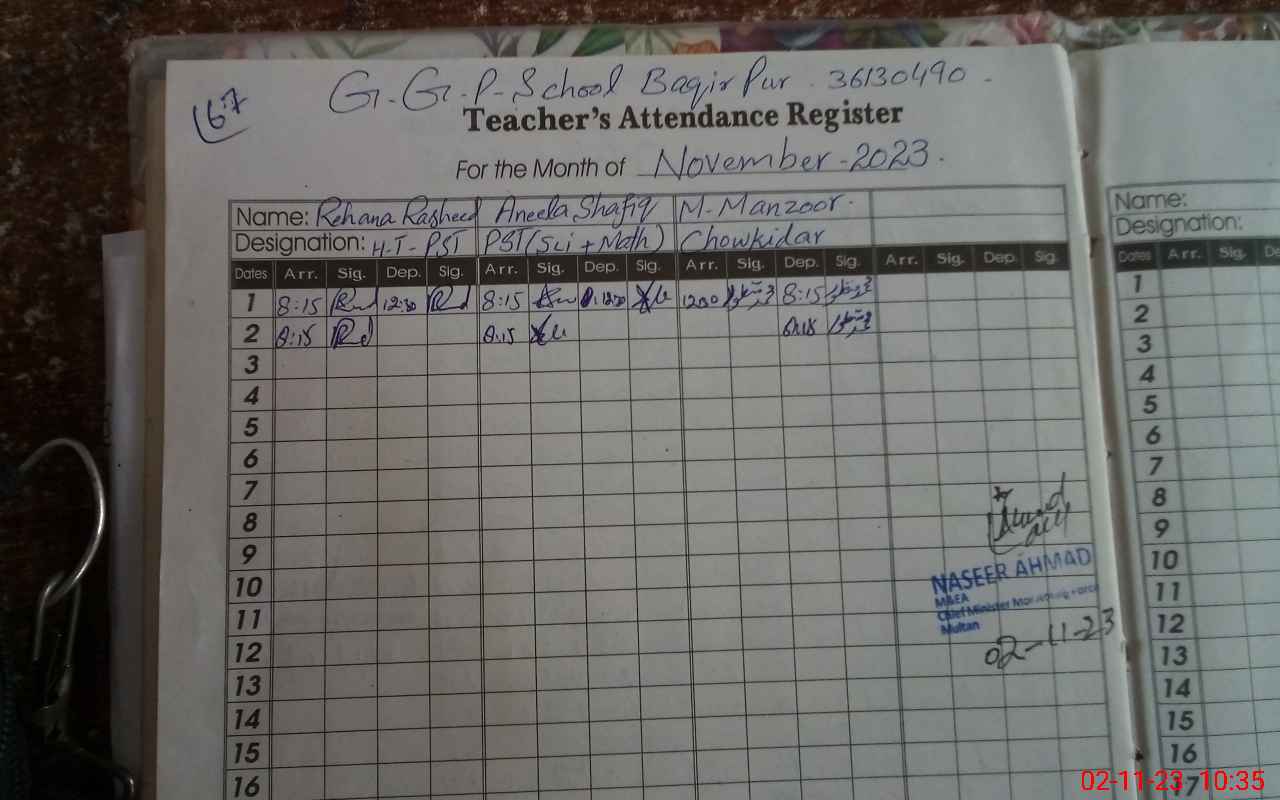 167
G.G.P-School Baqir Pur. 36130490.
Teacher's Attendance Register
For the Month of November-2023.
Name: Rehana Rasheed Aneela Shafiq M. Manzoor.
Designation: H.T-PST PST(Sci+Math) Chowkidar
Dates Arr. Sig. Dep. Sig. Arr. Sig. Dep. Sig. Arr. Sig. Dep. Sig. Arr. Sig. Dep. Sig.
1 8:15 12:30 8:15 12:30 1230 8:15
2 8:15 8:15 8:15
3
4
5
6
7
8
9
10
11
12
13
14
15
16
NASEER AHMAD
M&EA
Chief Minister Monitoring Force
Multan
02-11-23
Name:
Designation:
Dates Arr. Sig.
1
2
3
4
5
6
7
8
9
10
11
12
13
14
15
16
17
02-11-23 10:35